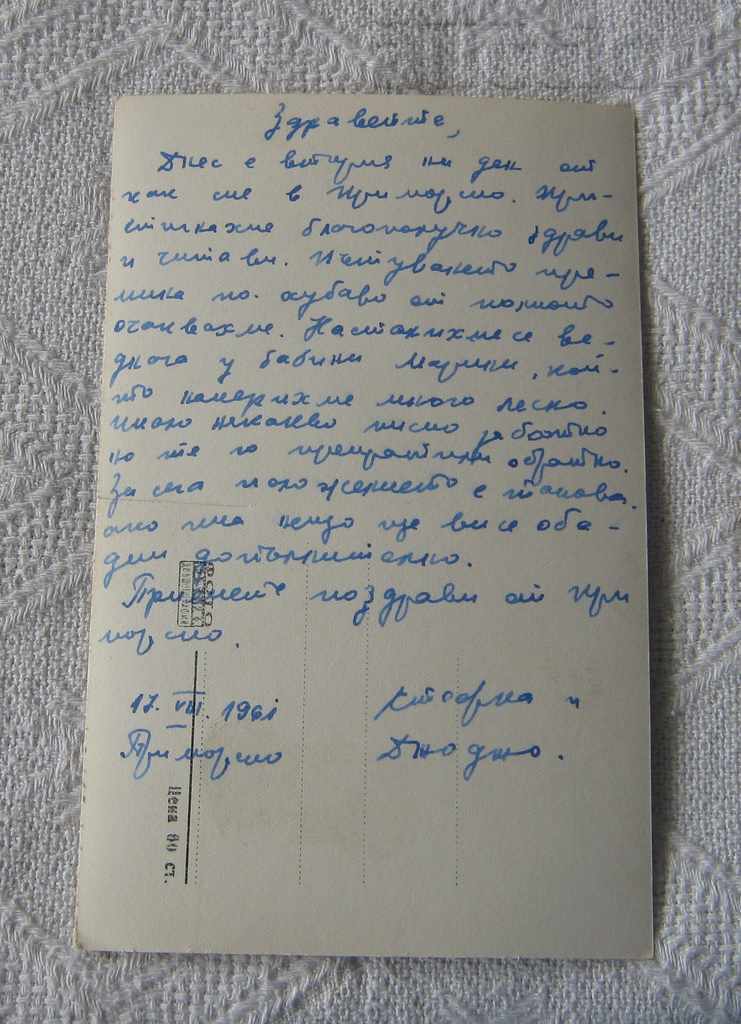 Здравейте,
Днес е вторият ни ден от
как сме в Приморско. При-
стигнахме благополучно здрави
и читави. Пътуването пре-
мина по-хубаво от колкото
очаквахме. Настанихме се ве-
днага у бабини Марини, кои-
то намерихме много лесно.
Имало някакво писмо
но те го препратили обратно.
За сега положението е такова.
ако има нещо ще ви се оба-
дим допълнително.
Приемете поздрави от При
морско.
17. VIII. 1961
Приморско
и
Джоджо.
ФОТО
Цена 60 ст.